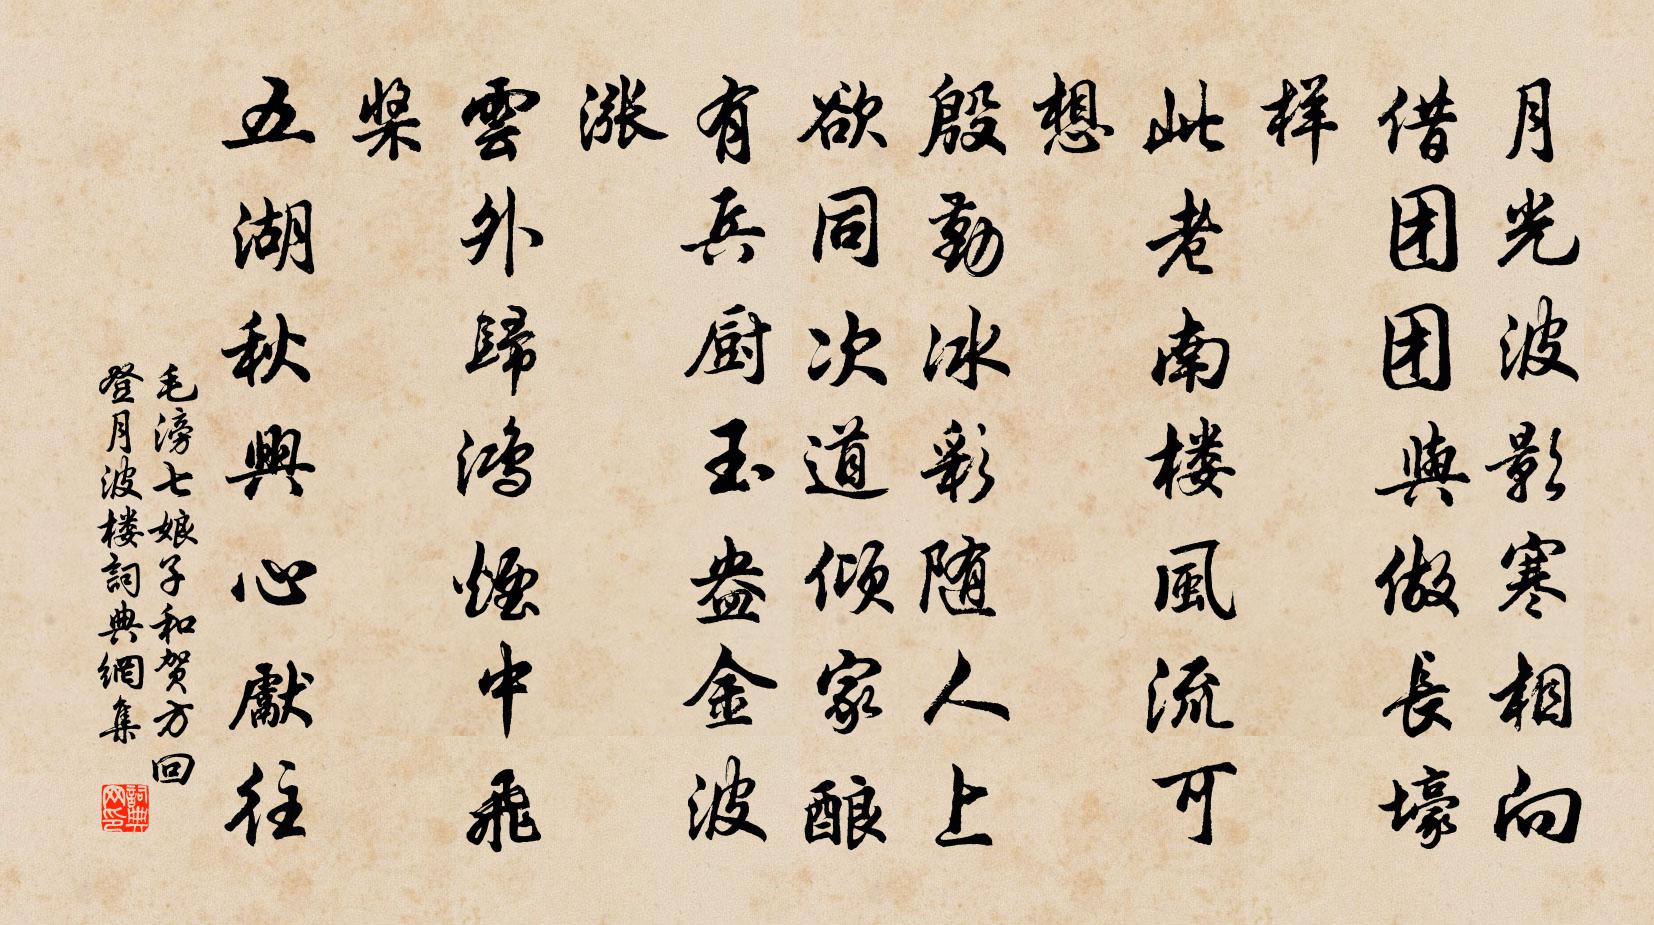 月光波影寒相向
借团团與做長壕
样
此老南楼風流可
想
殷勤冰彩随人上
欲同次道倾家酿
有兵厨玉盎金波
漲
雲外歸鴻煙中飛
桨
五湖秋興心獻往
毛滂七娘子和贺方回
登月波楼詞典網集
詞典網印